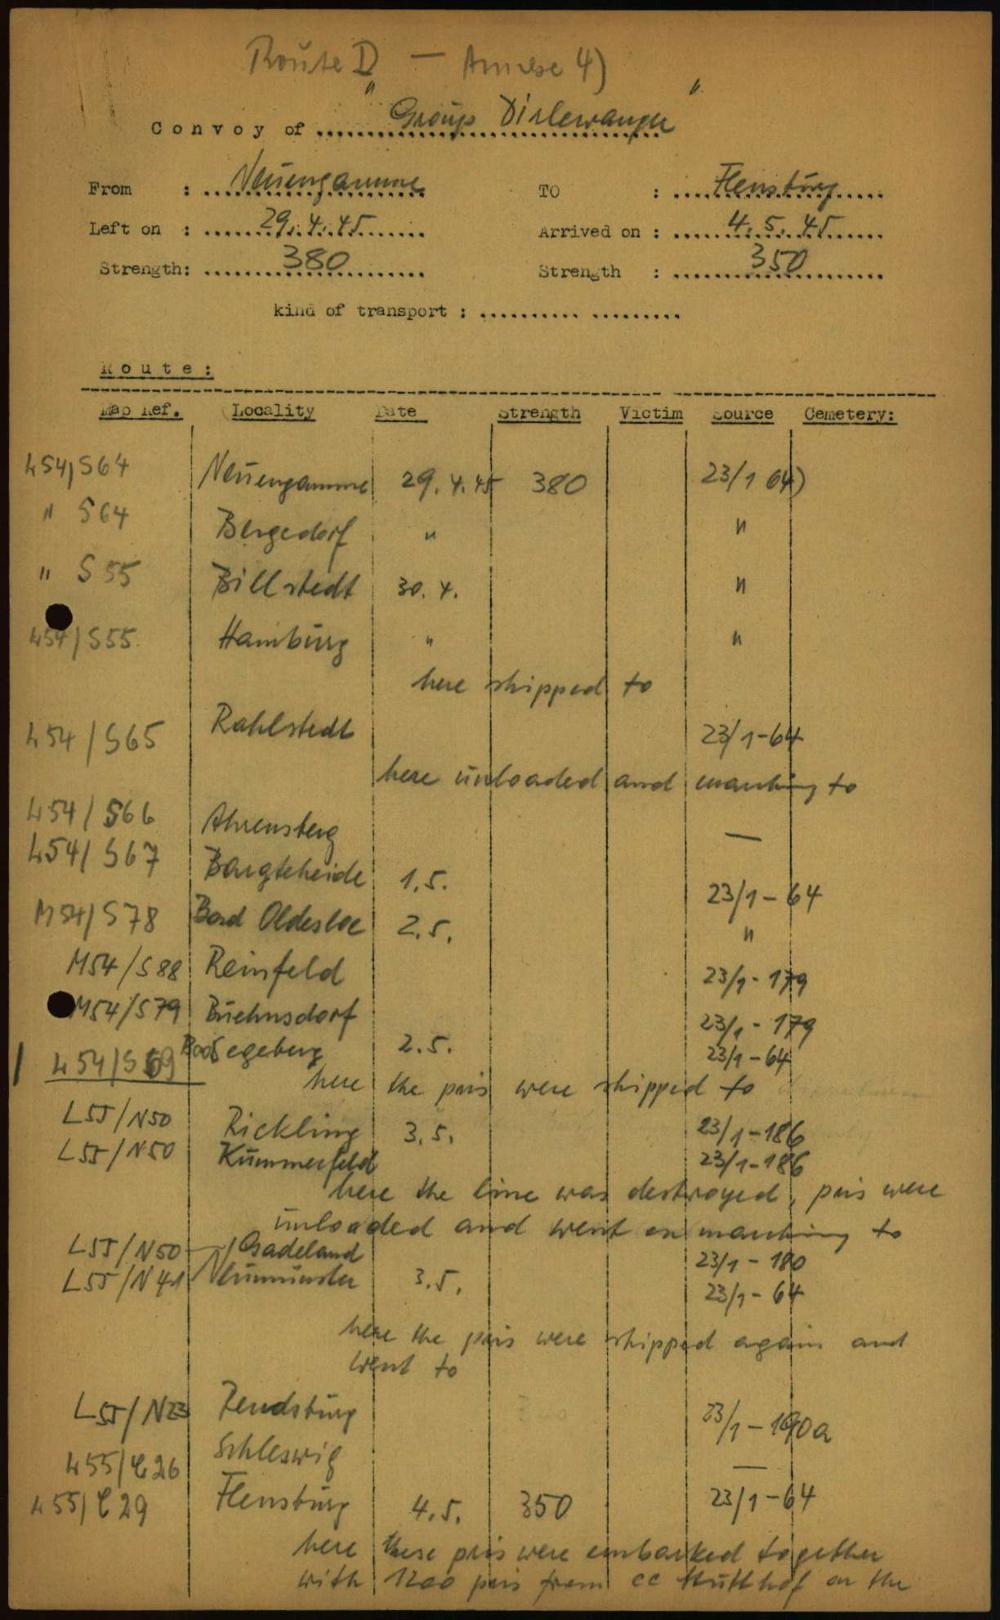 Route D — Annexe 4)
Convoy of "Group Dirlewanger"
From : Neuengamme TO : Flensburg
Left on : 29.4.45 Arrived on : 4.5.45
Strength: 380 Strength : 350
kind of transport : .......... .........
Route:
Map Ref. Locality Date Strength Victim Source Cemetery:
L54/S64 Neuengamme 29.4.45 380 23/1 64)
" S64 Bergedorf " "
" S55 Billstedt 30.4. "
L54/S55 Hamburg " "
here shipped to
L54/S65 Rahlstedt 23/1-64
here unloaded and marching to
L54/S66 Ahrensberg —
L54/S67 Bargteheide 1.5. 23/1-64
M54/S78 Bad Oldesloe 2.5. "
M54/S88 Reinfeld 23/1-179
M54/S79 Buehnsdorf 23/1-179
L54/S69 Bad Segeberg 2.5. 23/1-64
here the pris were shipped to
L55/N50 Rickling 3.5. 23/1-186
L55/N50 Kummerfeld 23/1-186
here the line was destroyed, pris were
unloaded and went on marching to
L55/N50 Gadeland 23/1-180
L55/N41 Neumünster 3.5. 23/1-64
here the pris were shipped again and
went to
L55/N23 Rendsburg 23/1-190a
L55/C26 Schleswig —
L55/C29 Flensburg 4.5. 350 23/1-64
here these pris were embarked together
with 1200 pris from CC Stutthof on the